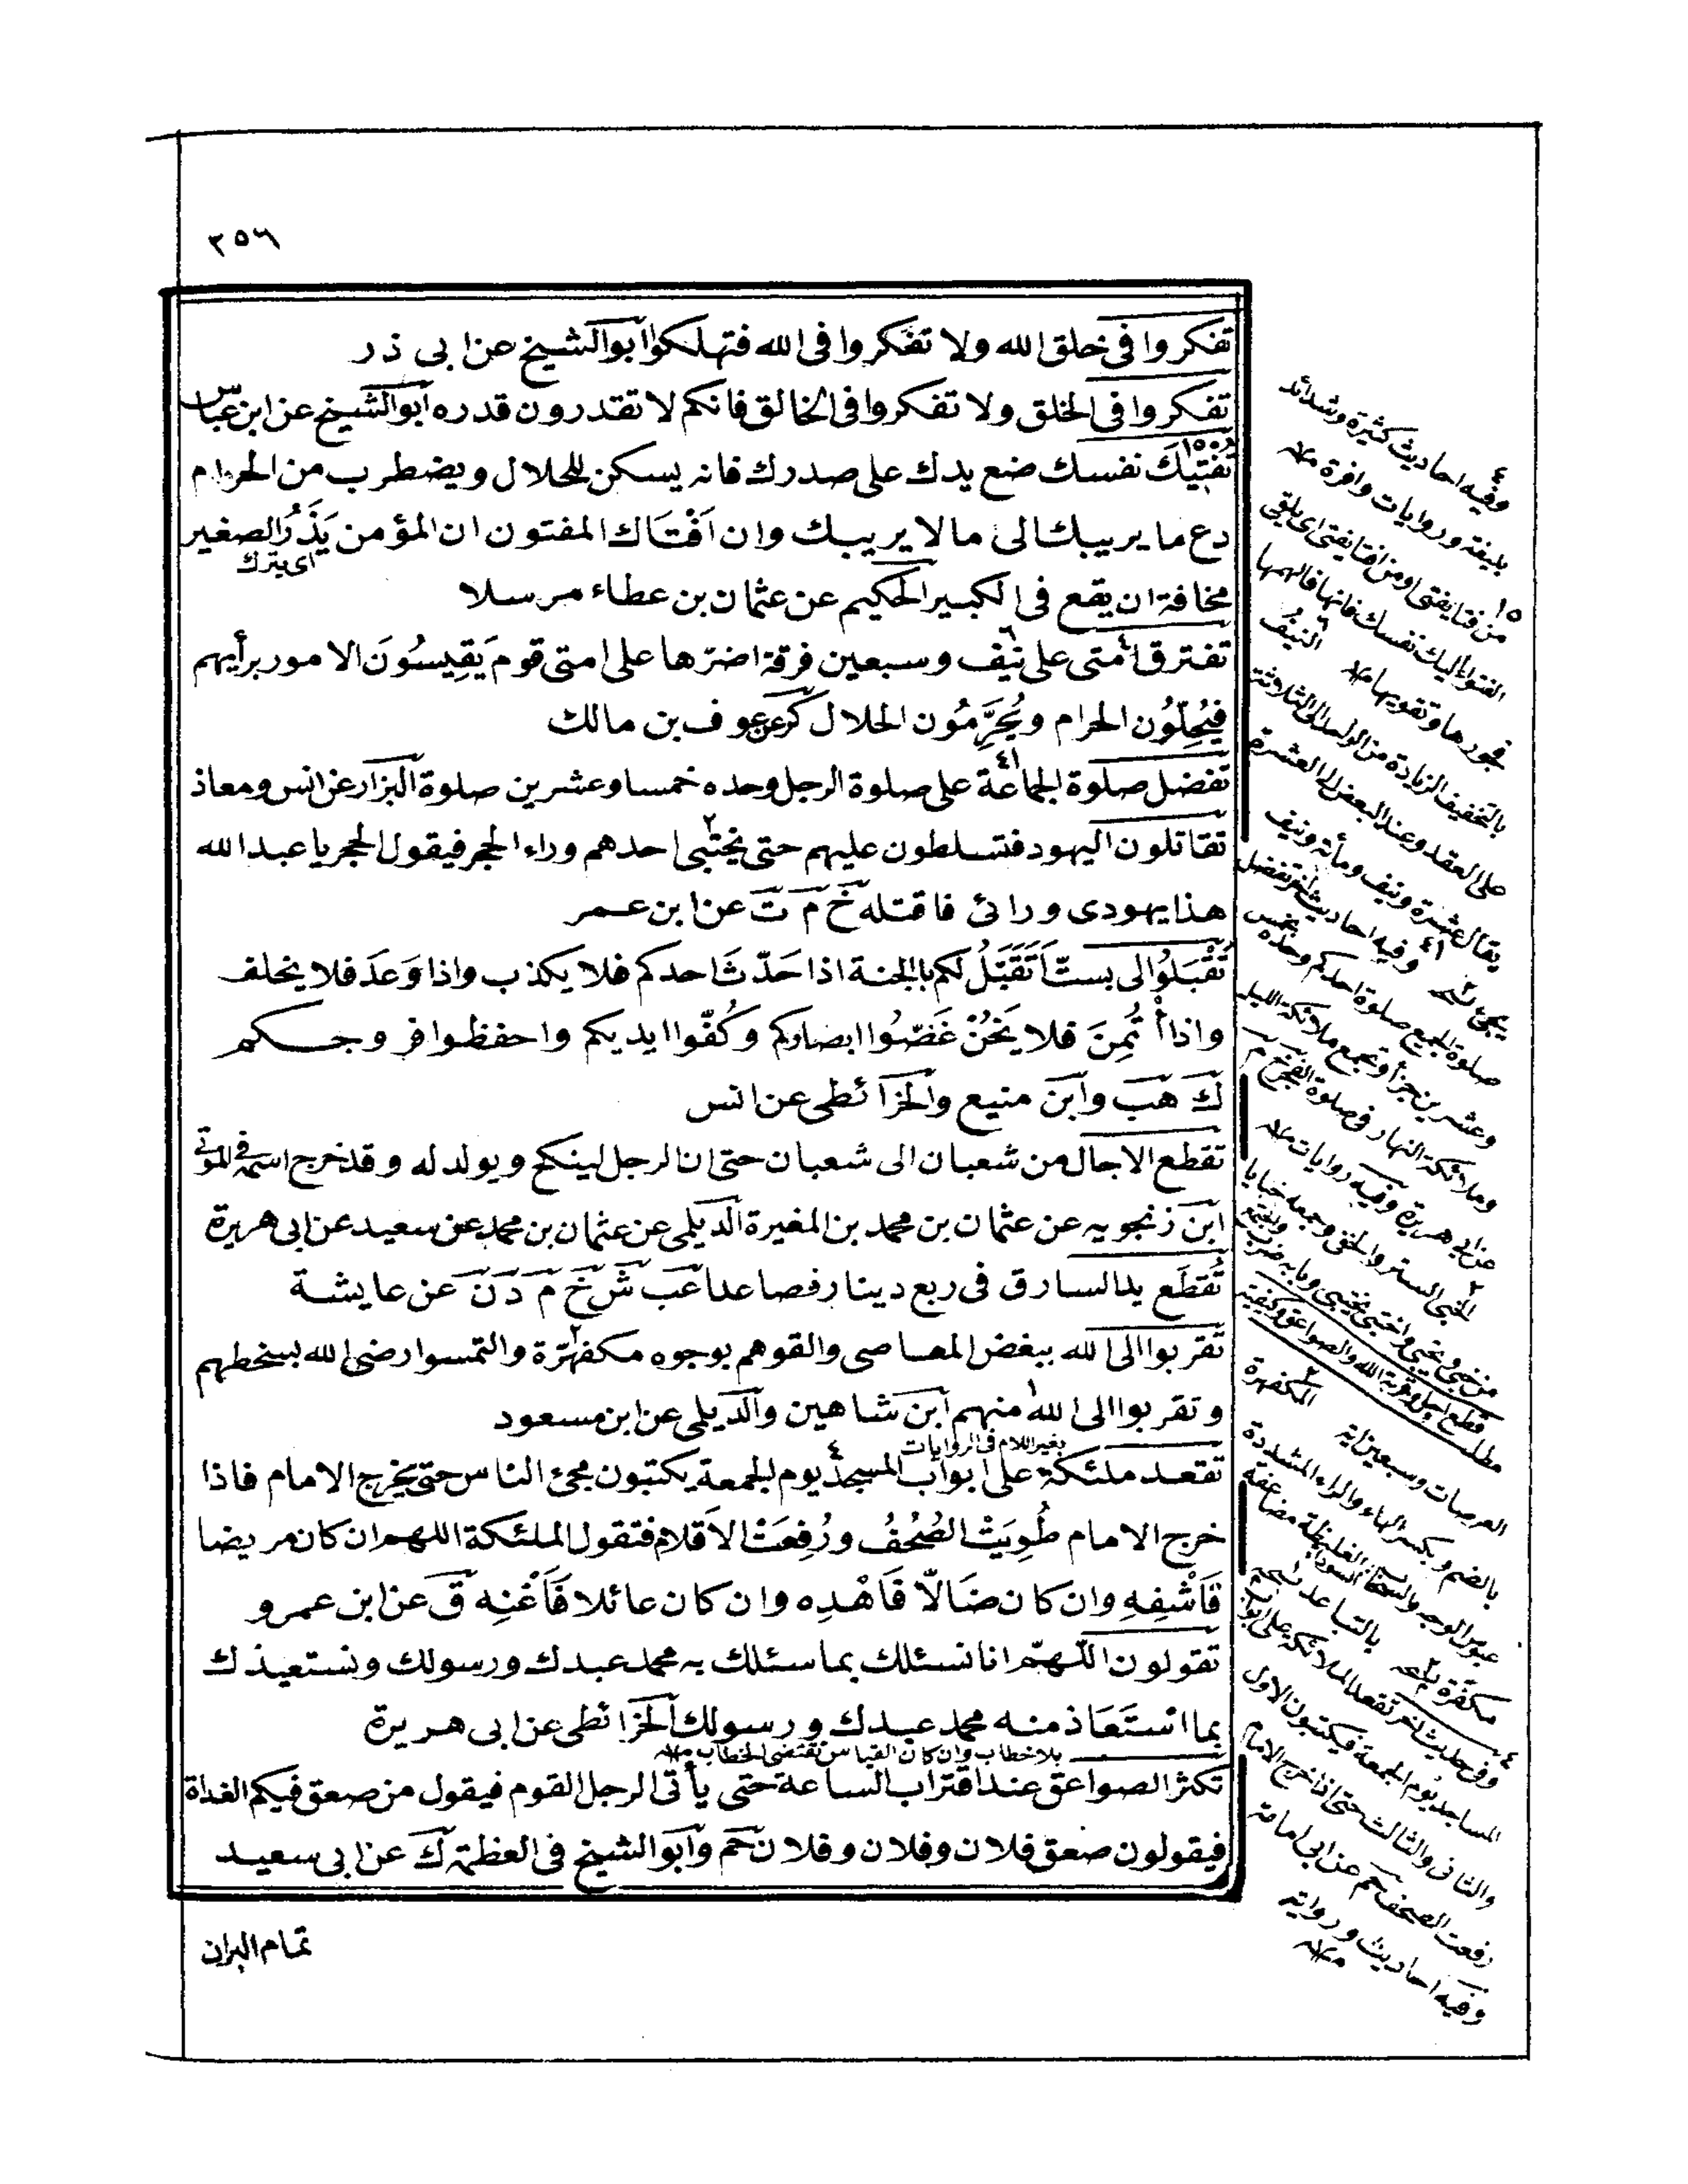 ٢٥٦
تفكروا في خلق الله ولا تفكروا في الله فتهلكوا أبو الشيخ عن ابى ذر
تفكروا فى الخلق ولا تفكروا فى الخالق فانكم لا تقدرون قدره أبو الشيخ عن ابن عباس
تُفْتِيْكَ نفسك ضع يدك على صدرك فانه يسكن للحلال ويضطرب من الحرام
دع ما يريبك الى ما لا يريبك وان اَفْتَاك المفتون ان المؤمن يَذَرُ الصغير
اى يترك
مخافة ان يقع فى الكبير الحكيم عن عثمان بن عطاء مرسلا
تفترق امتى على نيّف وسبعين فرقة اضرّها على امتى قوم يَقِيسُونَ الامور برأيهم
فَيُحِلّوُن الحرام ويُحَرِّمُون الحلال كر عن عوف بن مالك
تفضل صلوة الجماعة على صلوة الرجل وحده خمسا وعشرين صلوة البزار عن انس ومعاذ
تقاتلون اليهود فتسلطون عليهم حتى يختبى احدهم وراء الحجر فيقول الحجر يا عبدالله
هذا يهودى ورائى فاقتله خ م ت عن ابن عمر
تُقْبَلوُا لى بستّ اَتَقَبَّلُ لكم بالجنة اذا حَدّثَ احدكم فلا يكذب واذا وَعَدَ فلا يخلف
واذا أْتُمِنَ فلا يَخُنْ غَضّوُا ابصاركم وكُفّوا ايديكم واحفظوا فروجكم
ك هب وابن منيع والخرائطى عن انس
تقطع الاجال من شعبان الى شعبان حتى ان الرجل لينكح ويولد له وقد خرج اسمه فى الموتى
ابن زنجويه عن عثمان بن محمد بن المغيرة الديلمى عن عثمان بن محمد عن سعيد عن ابى هريرة
تُقطَع يد السارق فى ربع دينار فصاعدا عب ش خ م د ن عن عايشة
تقربوا الى الله ببغض المعاصى والقوهم بوجوه مكفهّرة والتمسوا رضى الله بسخطهم
وتقربوا الى الله منهم ابن شاهين والديلمى عن ابن مسعود
بغير اللام فى الروايات
تقعد ملئكة على أبواب المسجد يوم الجمعة يكتبون مجئ الناس حتى يخرج الامام فاذا
خرج الامام طُوِيَتْ الصُحُفُ ورُفِعَتْ الاَقلام فتقول الملئكة اللهم ان كان مريضا
فَاَشْفِهِ وان كان ضَالّاً فَاهْدِه وان كان عائلا فَاَغْنِه ق عن ابن عمرو
تقولون اللّهمّ انا نسئلك بما سئلك به محمد عبدك ورسولك ونستعيذك
بما اسْتَعَاذ منه محمد عبدك ورسولك الخرائطى عن ابى هريرة
بلا خطاب وان كان القياس تقتضى الخطاب
تكثر الصواعق عند اقتراب الساعة حتى يأتى الرجل القوم فيقول من صعق فيكم الغداة
فيقولون صعق فلان وفلان وفلان حم وأبو الشيخ فى العظمة ك عن ابى سعيد
تمام البران
٤ وفيه احاديث كثيرة وشدائد
بليغة وروايات وافرة
١٥ من فتا يفتى او من افتا يفتى اى يلقى
الفتواء اليك نفسك فانها فالهمها
فجورها وتقويها ٦ النيفُ
بالتخفيف الزيادة من الواحد الى الثلاثة
على العقد وعند البعض الى العشرة
يقال عشرة ونيف ومأة ونيف
٤١ وفيه احاديث اخر تفضل
صلوة الجميع صلوة احدكم وحده بخمس
وعشرين جزأ وتجمع ملائكة الليل
وملائكة النهار فى صلوة الفجر خ م
عن ابى هريرة وفيه روايات
مطلب قطع اجل وقربة الله والصواعق وكيفيته
٢ المكفهرة
بالضم وبكسر الهاء والراء المشددة
٤ وفى حديث اخر تقعد الملائكة على ابواب
المساجد يوم الجمعة فيكتبون الاول
والثانى والثالث حتى اذا خرج الامام
رفعت الصحف حم عن ابى امامة
وفيه احاديث ورواية